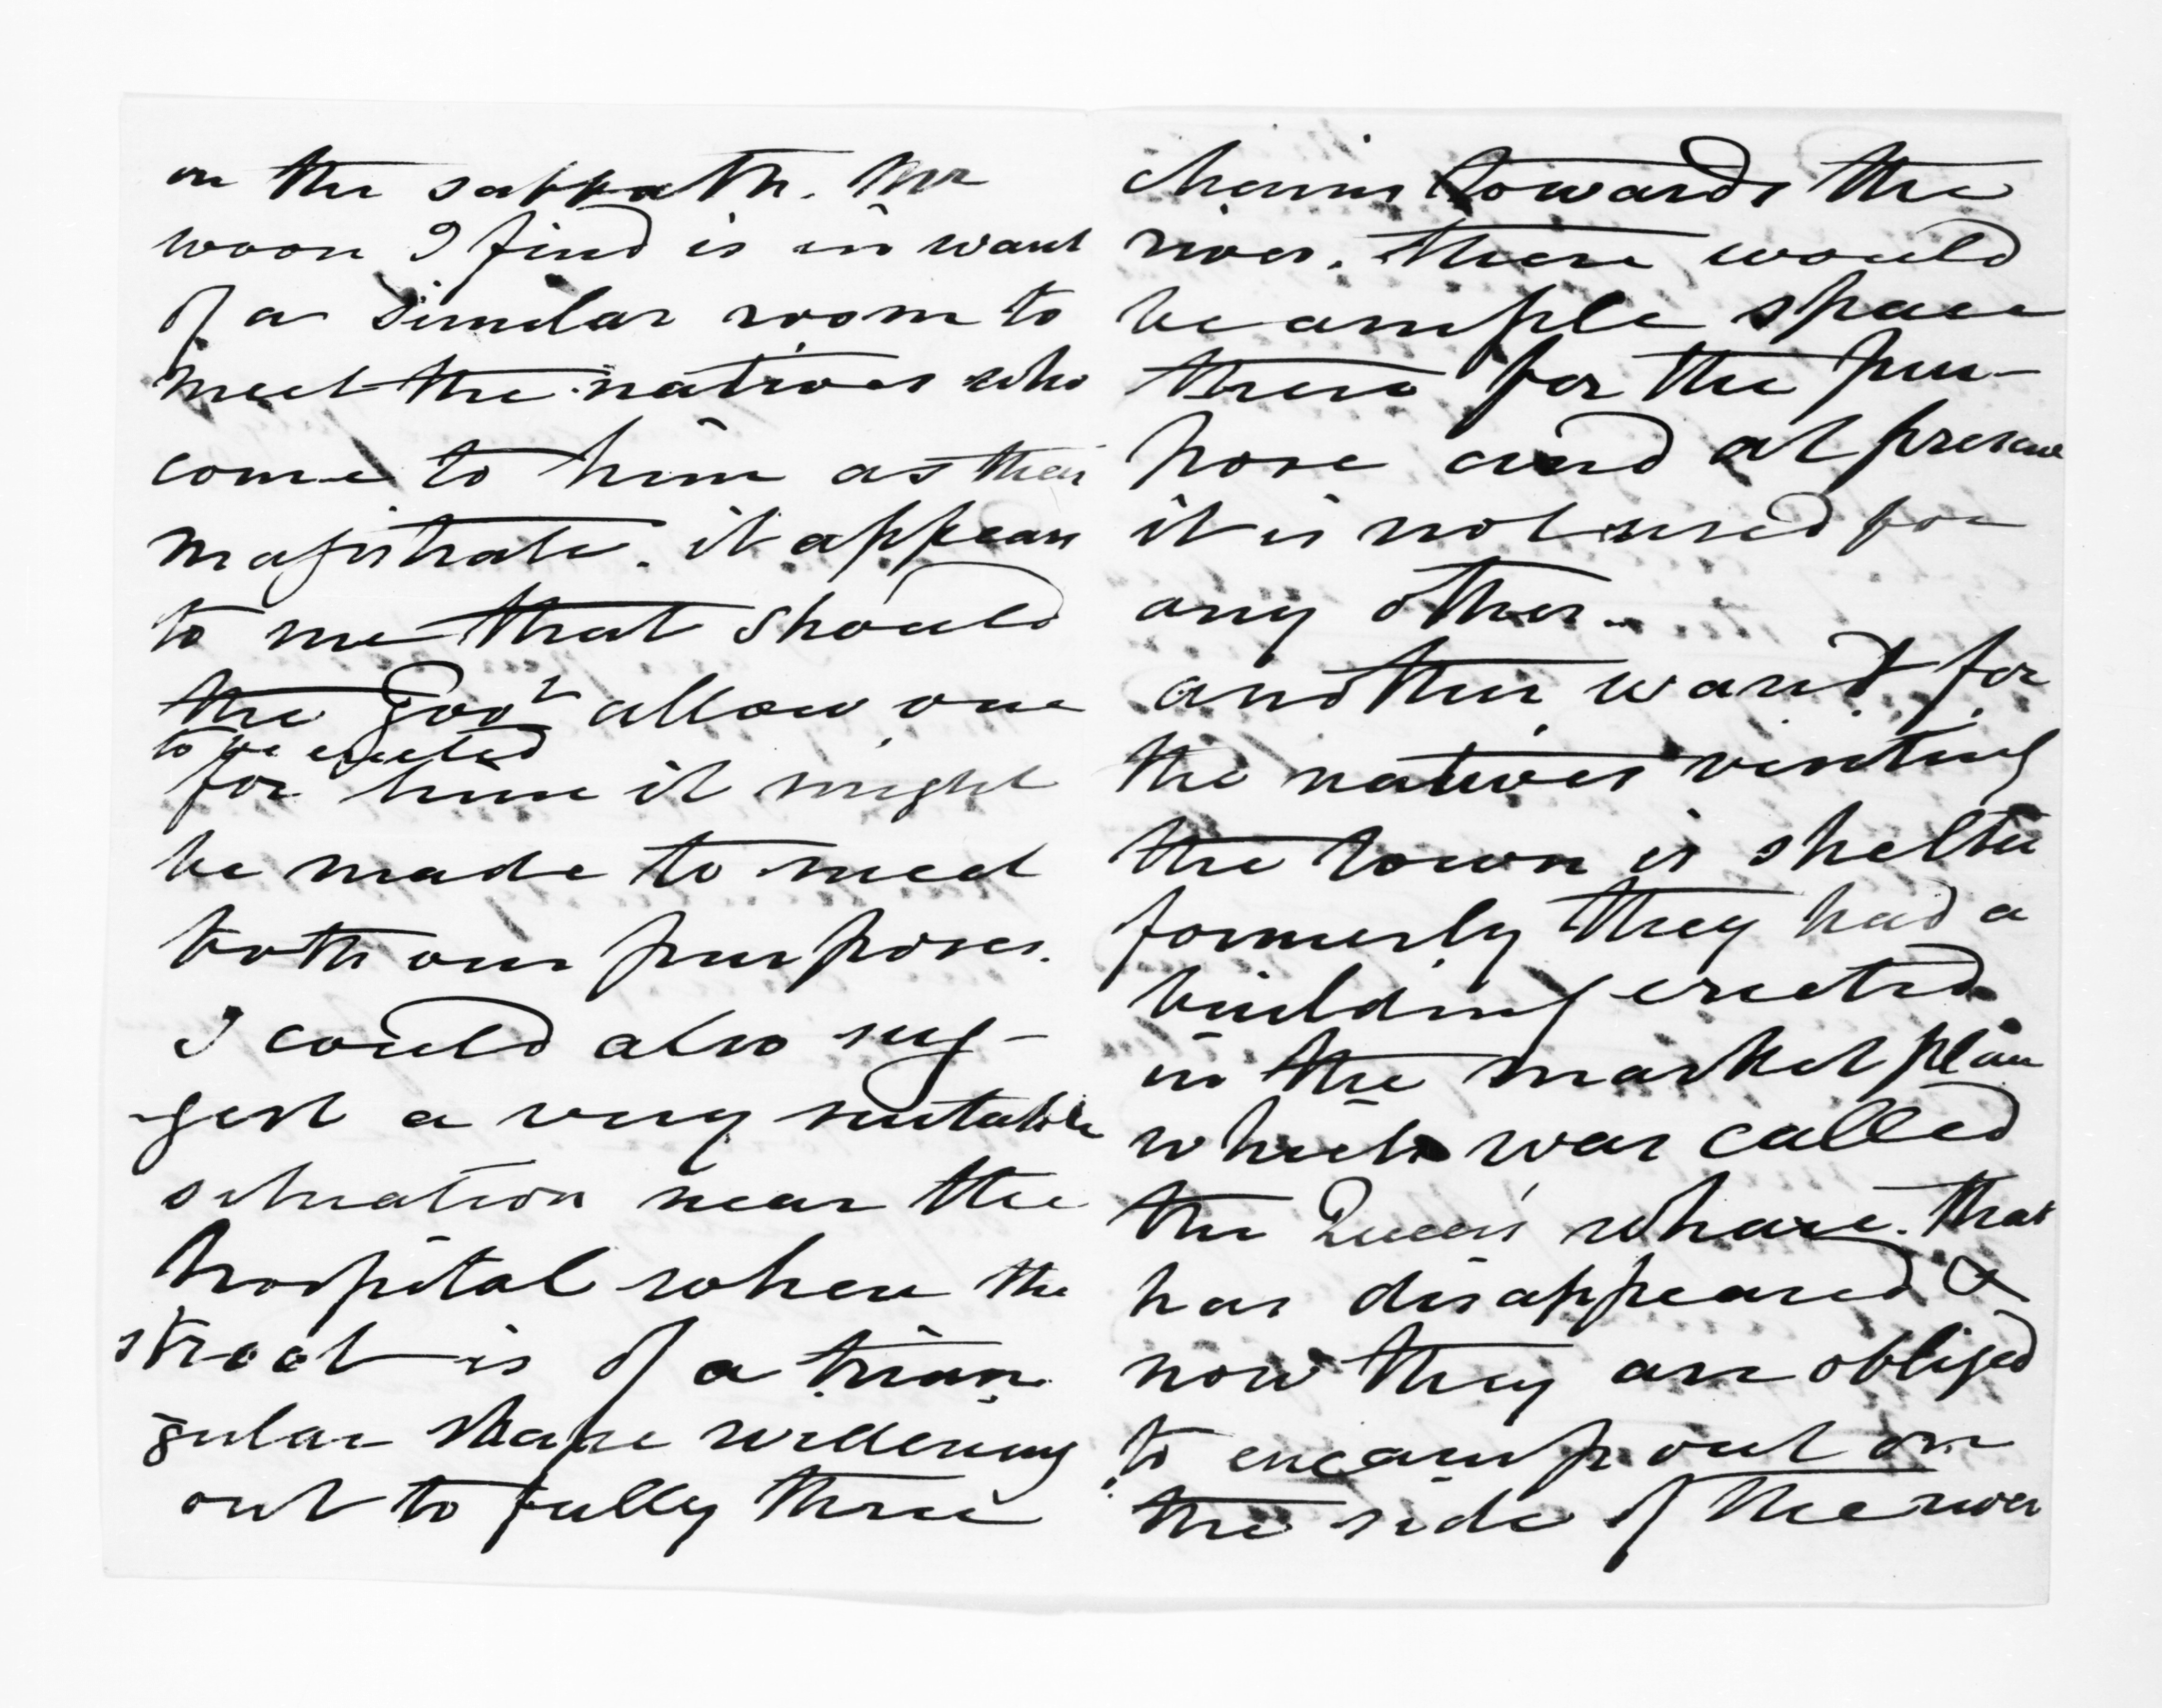 on the sabbath. Mr
woon I find is in want
of a similar room to
meet the natives who
come to him as their
magistrate. it appears
to me that should
the Govt allow one
to be erected
for him it might
be made to meet
both our purposes.
I could also sug-
-gest a very suitable
situation near the
hospital where the
street is of a trian
gular shape widening
out to fully three
chains towards the
river. there would
be ample space
there for the pur-
pose and at present
it is not used for
any other.
another want for
the natives visiting
the town is shelter
formerly they had a
building erected
in the market place
which was called
the Queen's whare. that
has disappeared &
now they are obliged
to encamp out on
the side of the river